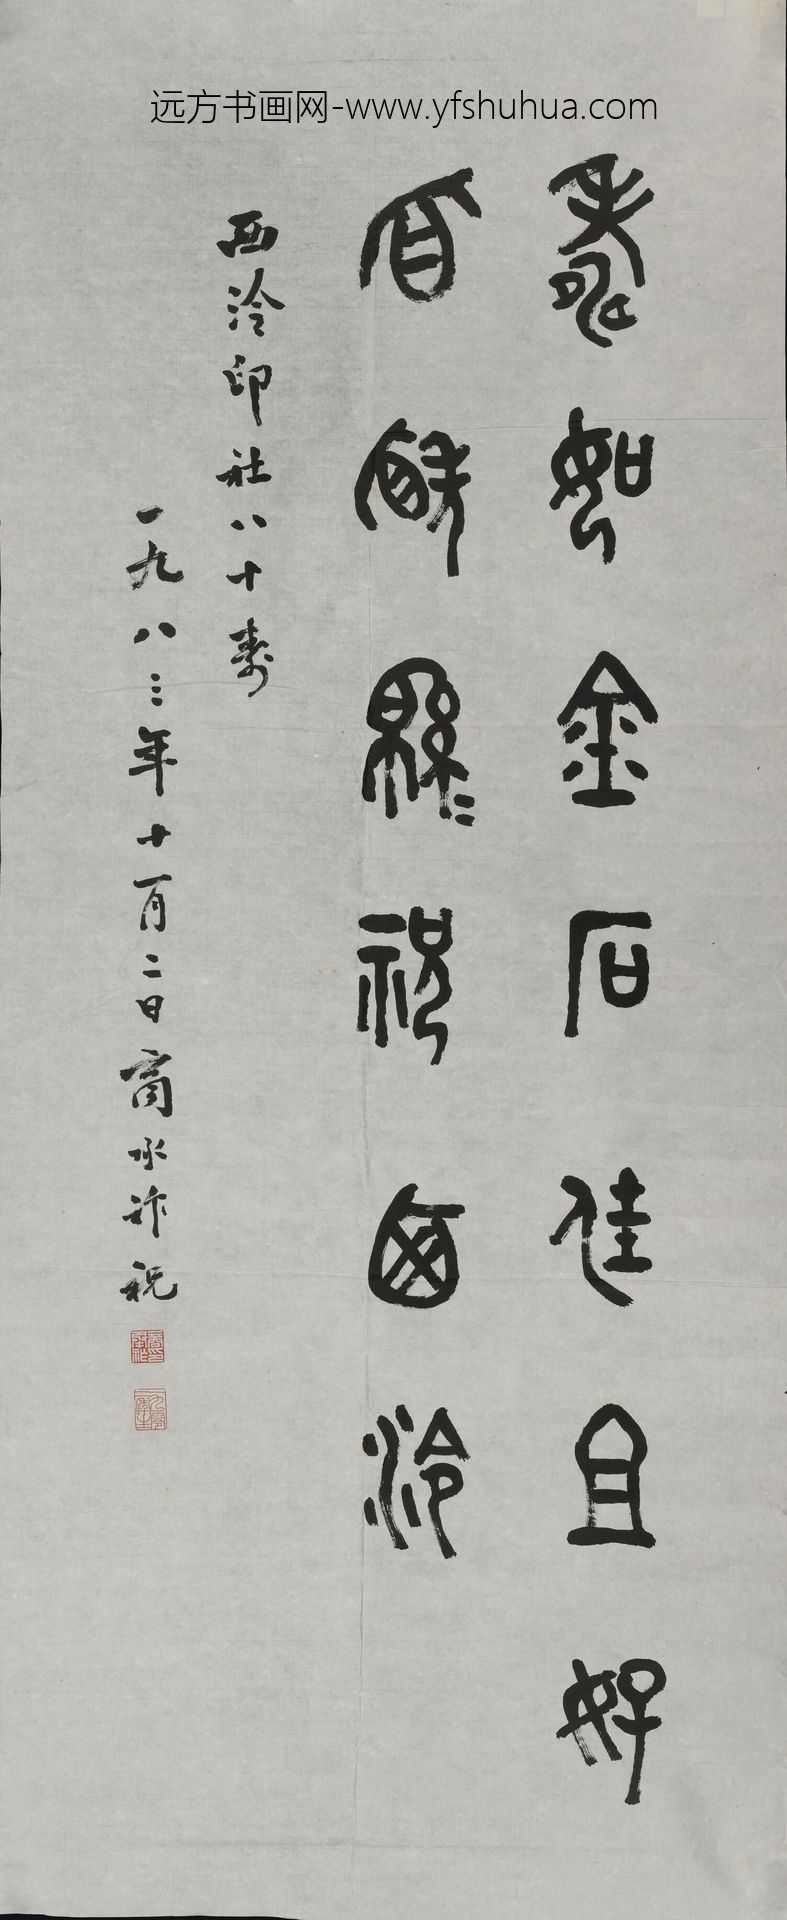 远方书画网-www.yfshuhua.com
寿如金石佳且好
百福绵〻祝西泠
西泠印社八十寿
一九八三年十一月二日商承祚祝